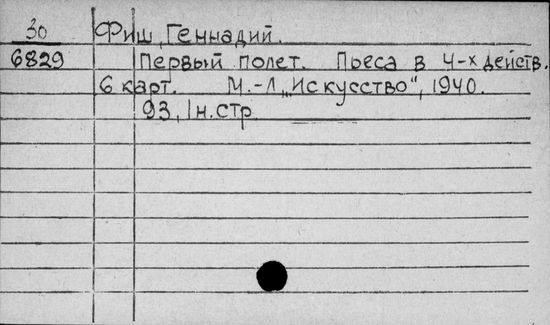 30 Фиш, Геннадий.
6829 Первый полет. Пьеса в 4-х действ.
6 карт. М.-Л., "Искусство", 1940.
93, 1 н. стр.